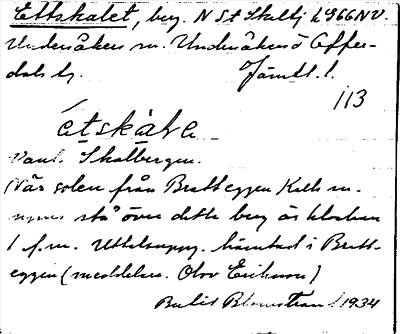 Ettskalet, berg. N St Skalbj L966NV.
Undersåkers sn. Undersåkers o Offer-
dals tg. Jämtl. l.
113
étskàlɐ
vanl. Skalbergen.
När solen från Bratteggen Kalls sn.
synes stå över detta berg är klockan
1 f.m. Uttalsuppg. hämtad i Bratt-
eggen (meddelare. Olov Erikson)
Berlis Blomstran 1934